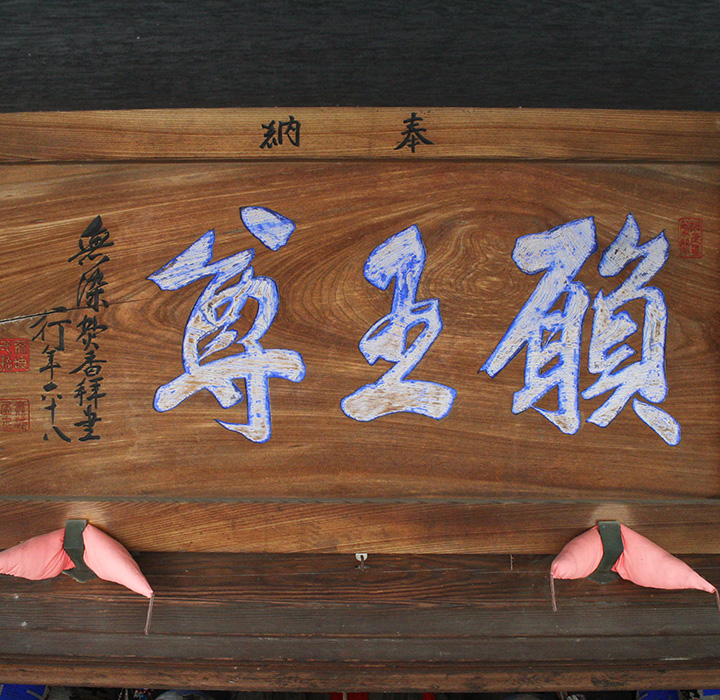 奉納
願王尊
無染焚香拜書
行年六十八